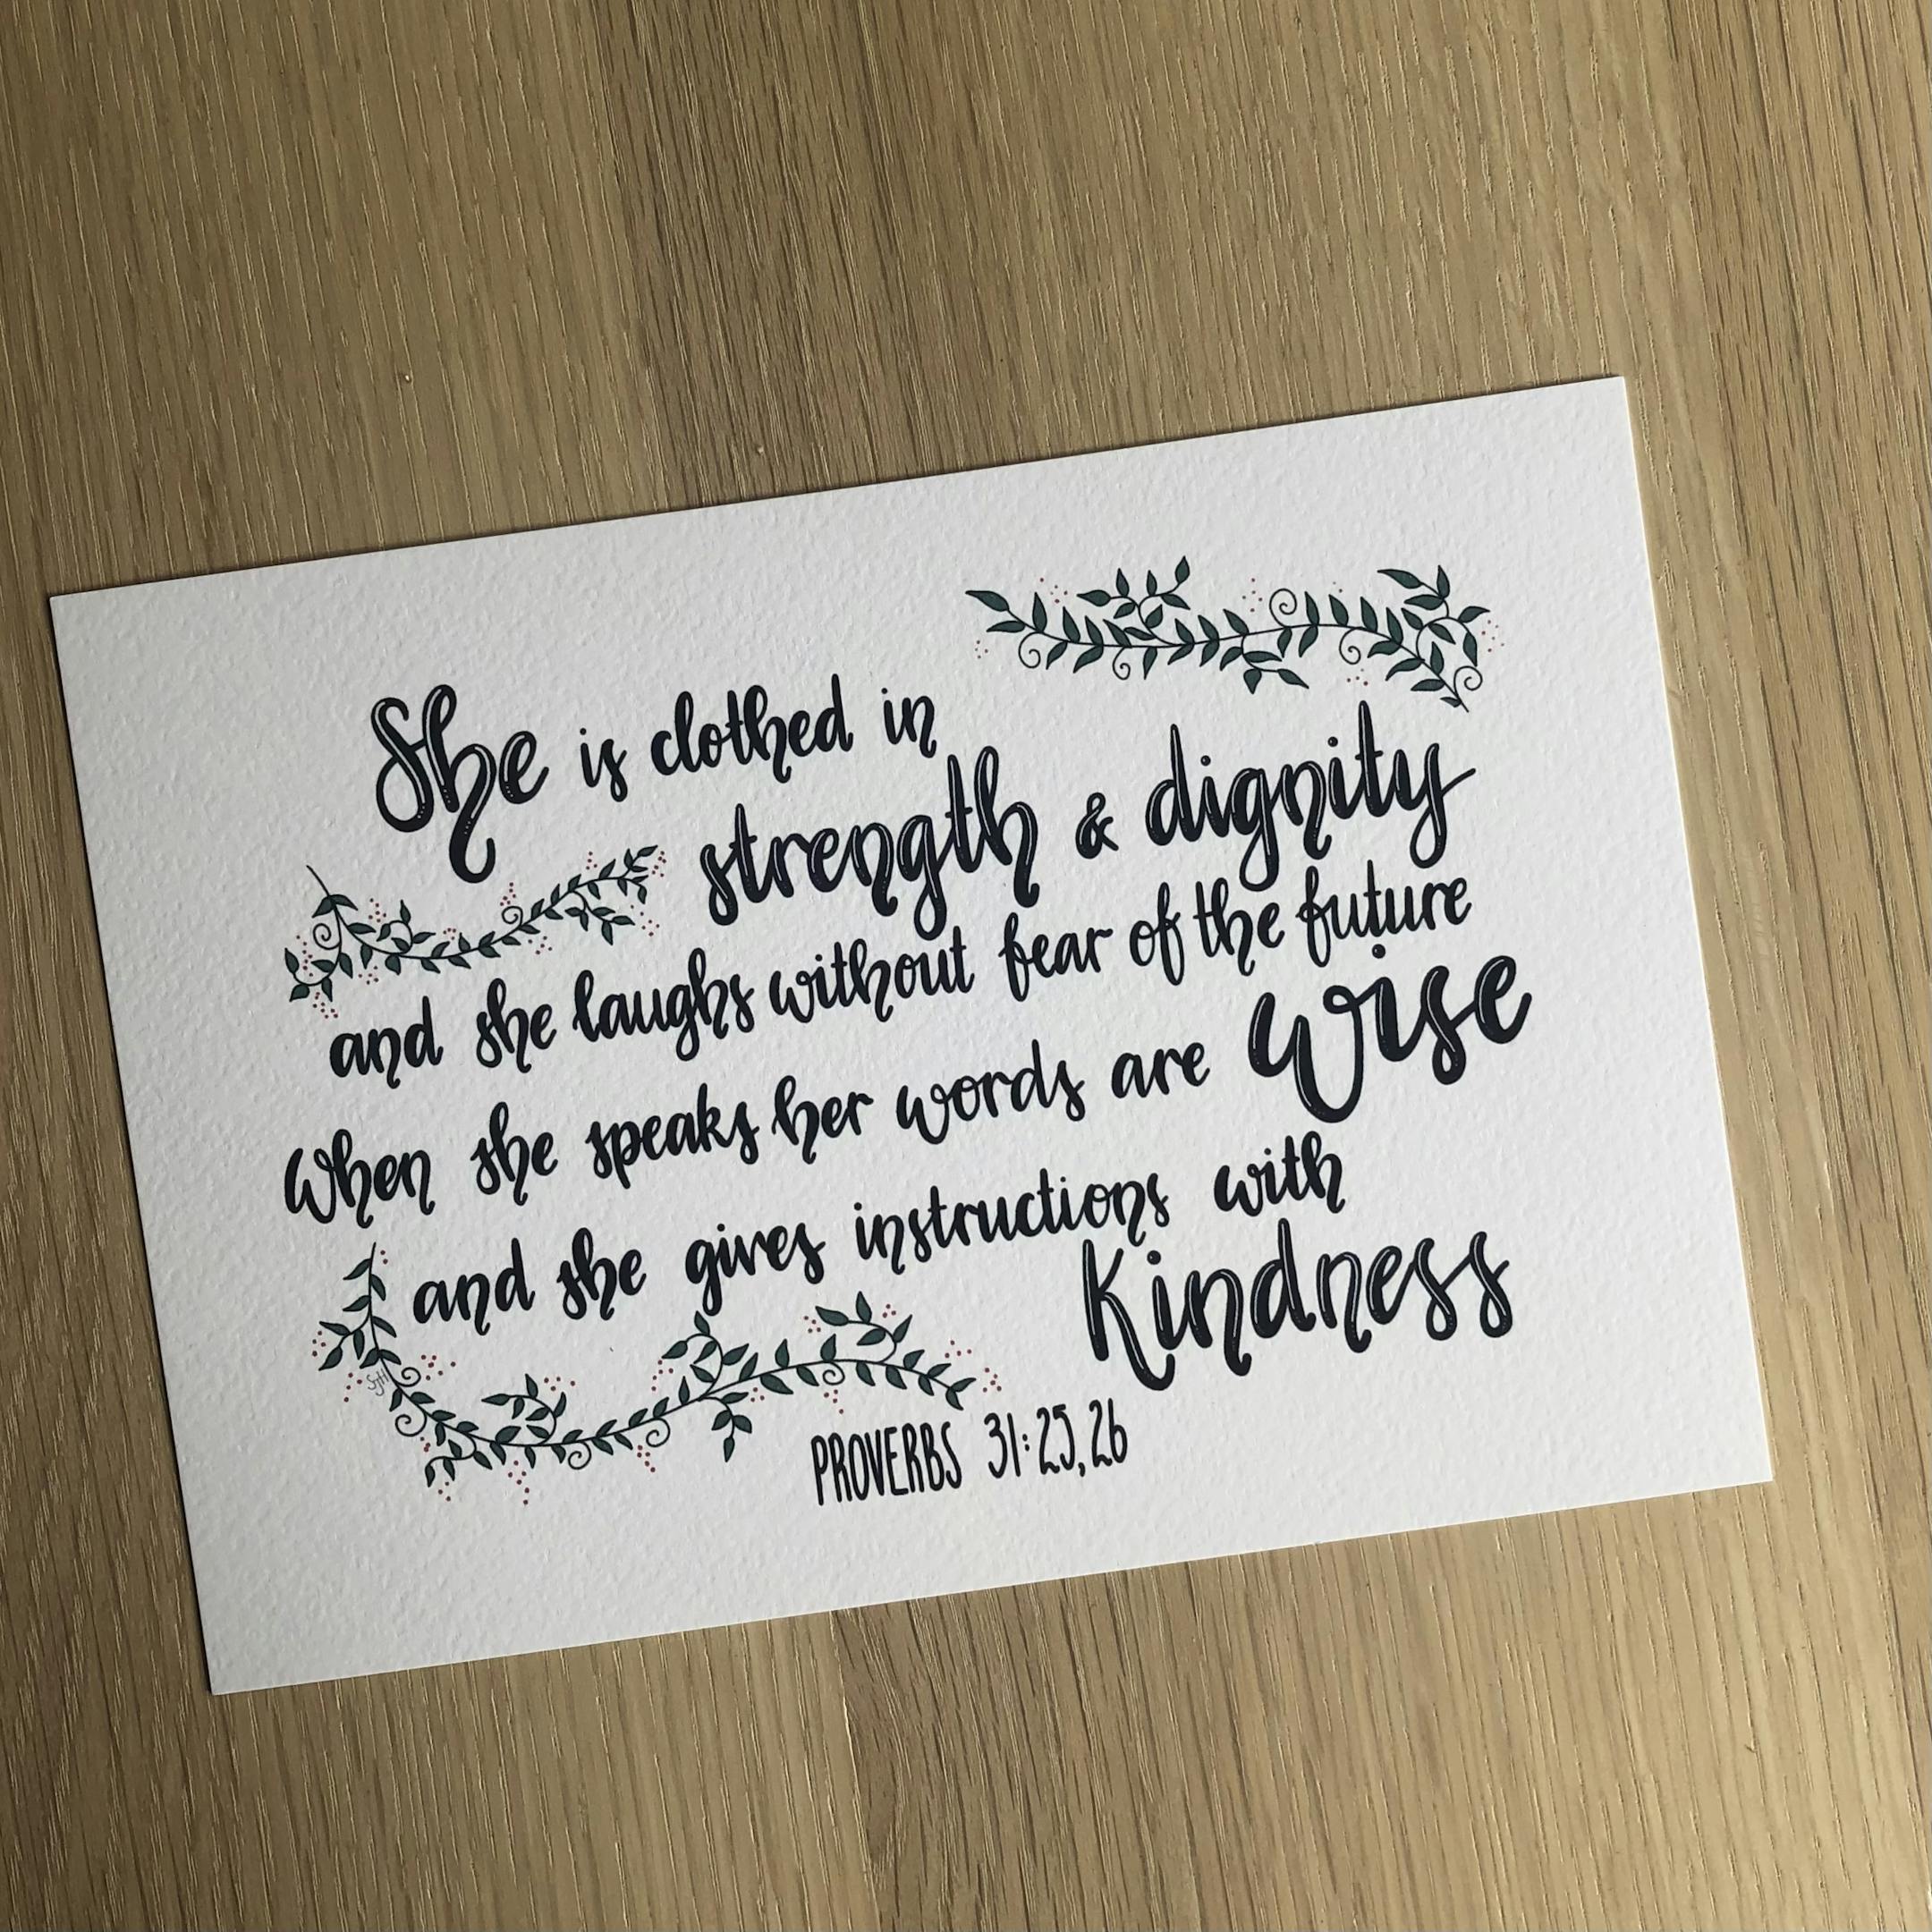 She is clothed in
strength & dignity
and she laughs without fear of the future
When she speaks her words are wise
and she gives instructions with
Kindness
SJH
PROVERBS 31:25,26